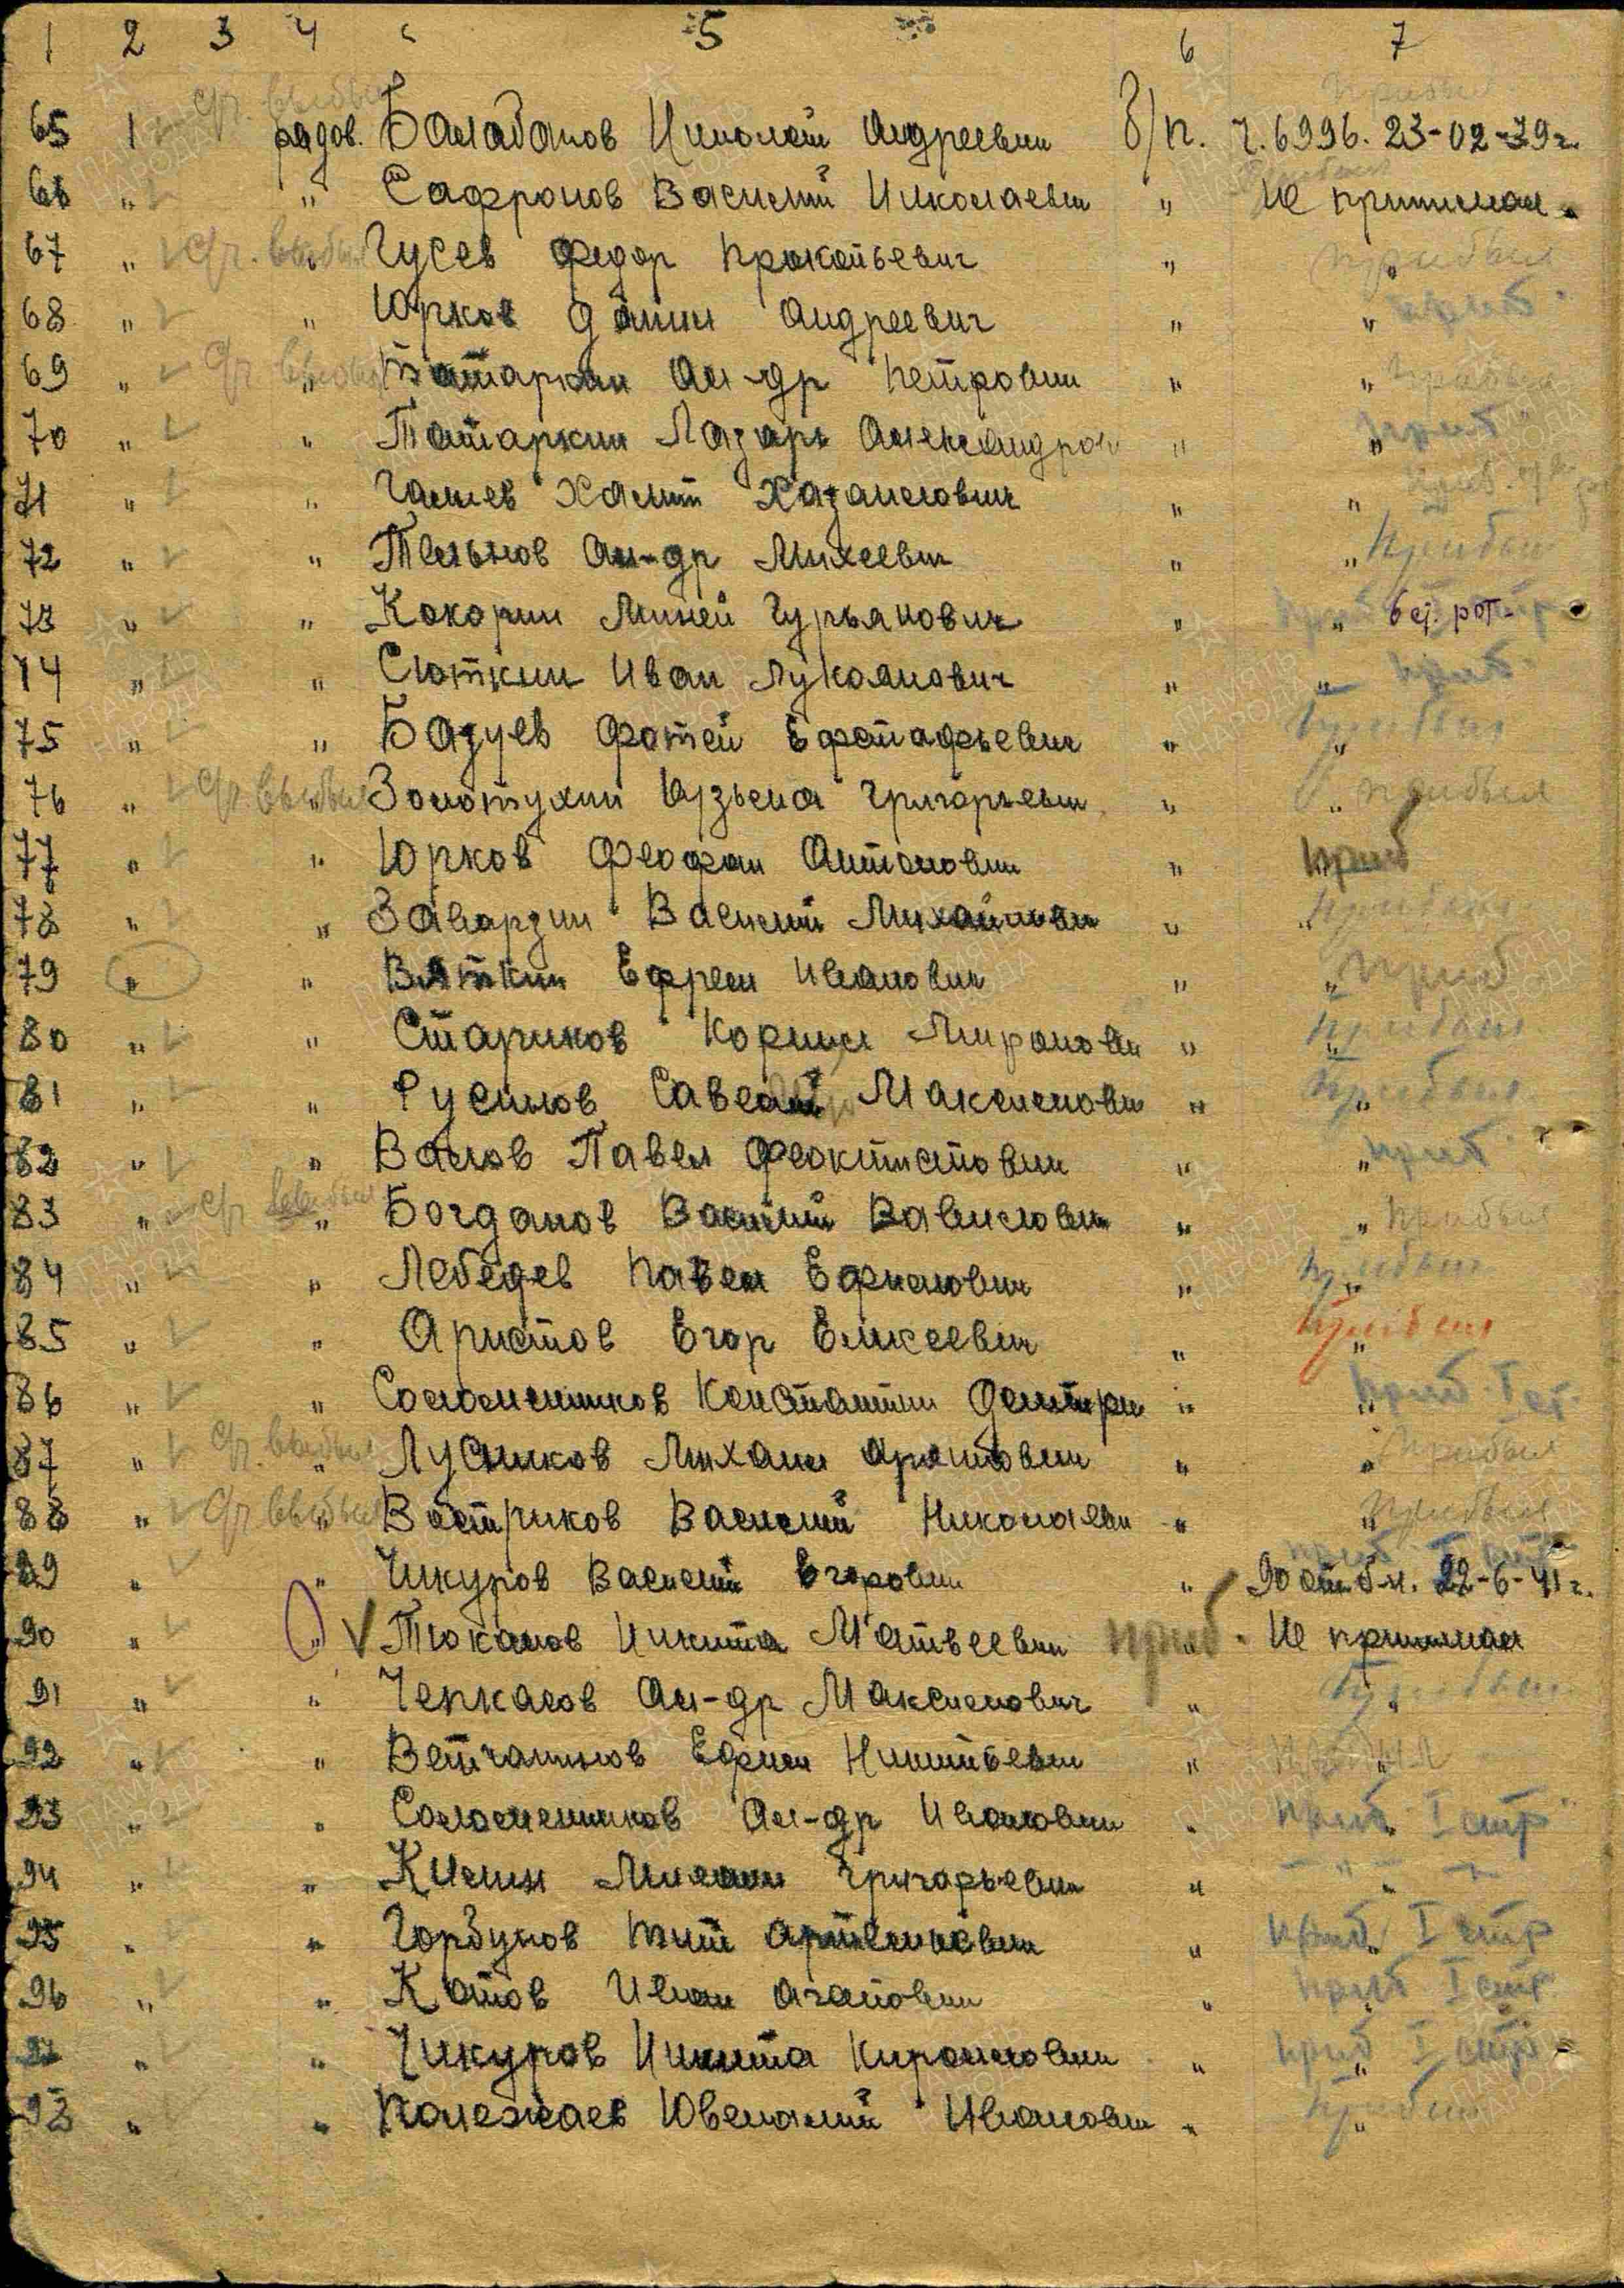 1 2 3 4 5 6 7
65 1 ср. выбыл рядов. Балабанов Николай Андреевич б/п. ч. 6996. 23-02-39г. прибыл
66 " " Сафронов Василий Николаевич " Не принимал.
67 " ср. выбыл " Гусев Федор Прокопьевич " " прибыл
68 " " Юрков Данил Андреевич " " приб
69 " ср. выбыл " Татаркин Ал-др Петрович " " прибыл
70 " " Татаркин Лазарь Александров " " приб
71 " " Галиев Хамит " "
72 " " Тельнов Ал-др Михеевич " " Прибыл
73 " " Кокорин Миней Гурьянович " " рот.
74 " " Сюткин Иван Лукоянович " " приб
75 " " Базуев Фотей Ефстафьевич " " прибыл
76 " ср. выбыл " Золотухин Кузьма Григорьевич " " прибыл
77 " " Юрков Феофан Антонович " приб
78 " " Заварзин Василий Михайлович " " прибыл
79 " " Вяткин Ефрем Иванович " " приб
80 " " Стариков Корнил Миронович " " прибыл
81 " " Русинов Савелий Максимович " " прибыл
82 " " Валов Павел Феоктистович " " приб
83 " ср. выбыл " Богданов Василий Вавилович " " прибыл
84 " " Лебедев Павел Ефимович " " прибыл
85 " " Аристов Егор Еликеевич " " прибыл
86 " " Соломенников Константин Дмитри " " приб. I ст.
87 " ср. выбыл " Лусников Михаил " " Прибыл
88 " ср. выбыл " Востриков Василий Николаевич " " прибыл
89 " " Чикуров Василий Егорович " 90 отм. б-н. 22-6-41г.
90 " " Тюкалов Никита Матвеевич приб " Не принимал
91 " " Черкасов Ал-др Максимович " " прибыл
92 " " Ветчанинов Ефим Никитьевич " " прибыл
93 " " Соломенников Ал-др Иванович " приб " I стр
94 " " Килин Михаил Григорьевич " "
95 " " Горбунов Тит Артемьевич " приб " I стр
96 " " Катов Иван Агапович " приб " I стр
97 " " Чикуров Никита " приб " I стр
98 " " Полежаев Ювеналий Иванович " " прибыл